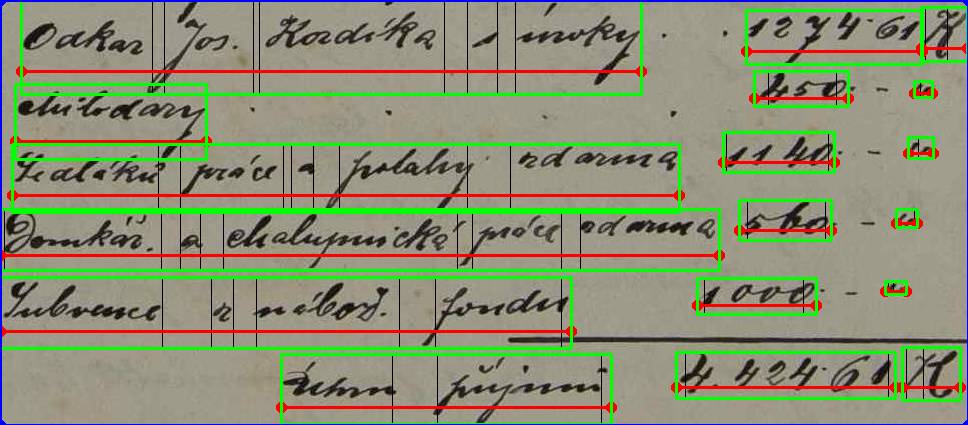 Odkaz Jos. Kordíka s úroky . . 1274·61 K
Milodary . . . 450 - „
Sedláků práce a potahy zdarma 1140 - „
Domkář. a chalupnická práce zdarma 560 - „
Subvence z nábož. fondu 1000 - „
Úhrn příjmů 4.424·61 K